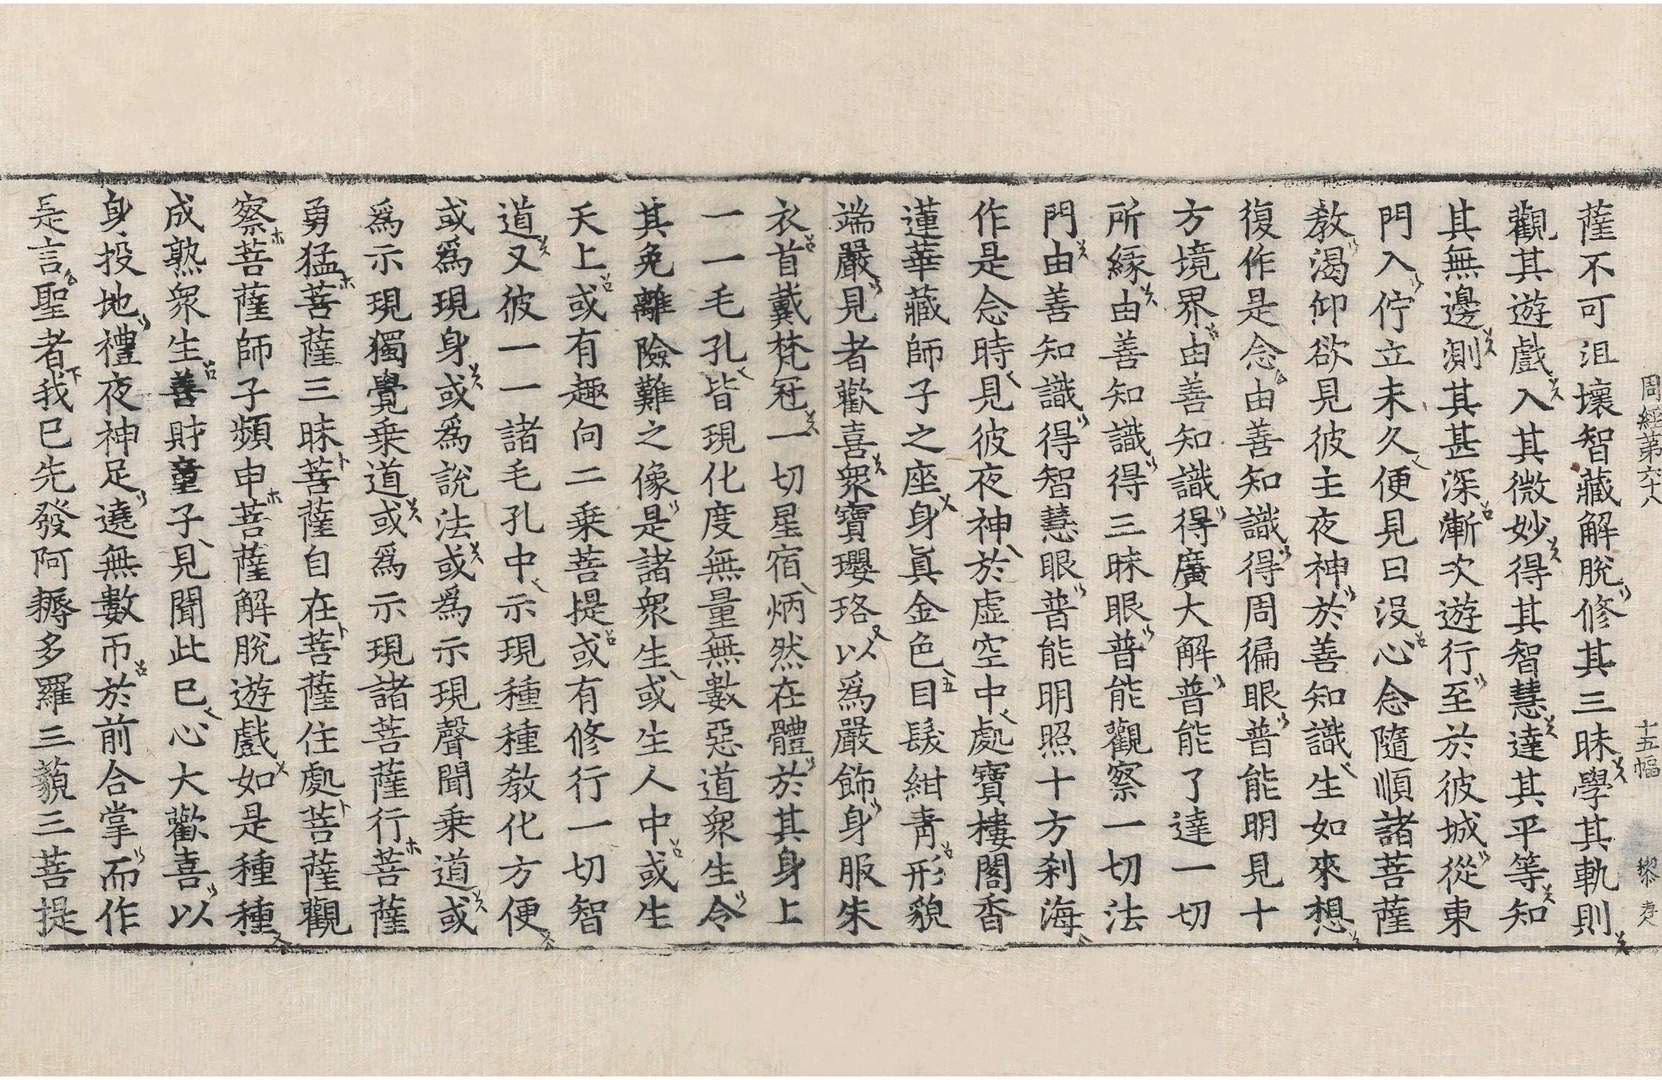 周經第六十八 十五幅
薩不可沮壞智藏解脫修其三昧學其軌則
觀其遊戲入其微妙得其智慧達其平等知
其無邊測其甚深漸次遊行至於彼城從東
門入佇立未久便見日沒心念隨順諸菩薩
教渴仰欲見彼主夜神於善知識生如來想
復作是念由善知識得周徧眼普能明見十
方境界由善知識得廣大解普能了達一切
所緣由善知識得三昧眼普能觀察一切法
門由善知識得智慧眼普能明照十方刹海
作是念時見彼夜神於虛空中處寶樓閣香
蓮華藏師子之座身真金色目髮紺青形貌
端嚴見者歡喜衆寶瓔珞以爲嚴飾身服朱
衣首戴梵冠一切星宿炳然在體於其身上
一一毛孔皆現化度無量無數惡道衆生令
其免離險難之像是諸衆生或生人中或生
天上或有趣向二乘菩提或有修行一切智
道又彼一一諸毛孔中示現種種教化方便
或爲現身或爲說法或爲示現聲聞乘道或
爲示現獨覺乘道或爲示現諸菩薩行菩薩
勇猛菩薩三昧菩薩自在菩薩住處菩薩觀
察菩薩師子頻申菩薩解脫遊戲如是種種
成熟衆生善財童子見聞此已心大歡喜以
身投地禮夜神足遶無數帀於前合掌而作
是言聖者我已先發阿耨多羅三藐三菩提